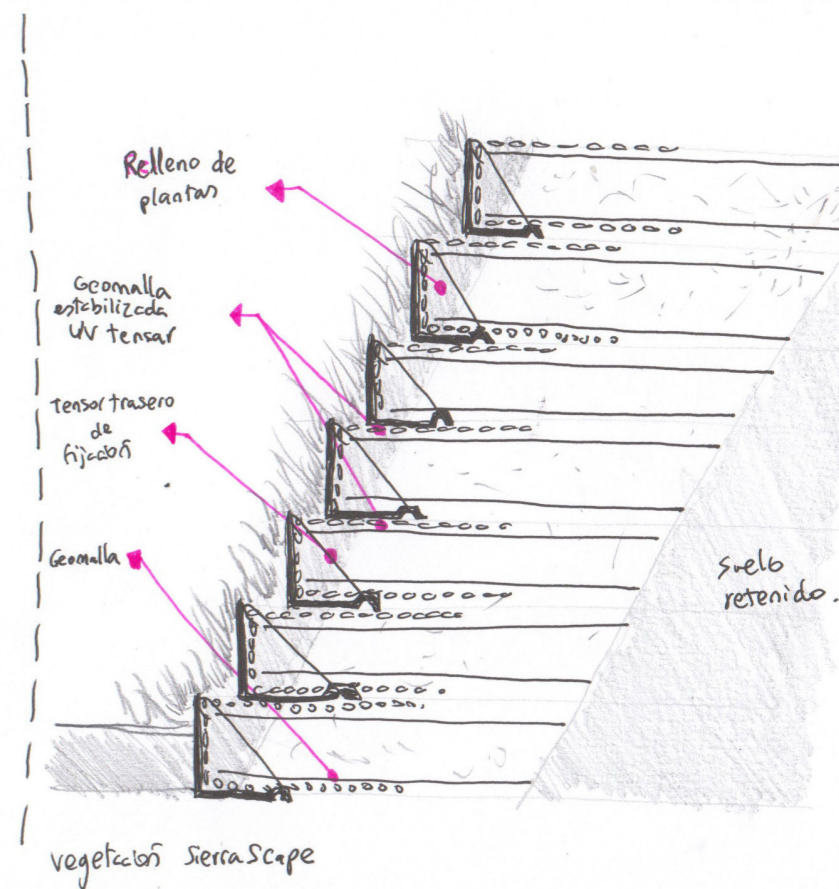 Relleno de
plantas
Geomalla
estabilizada
UV tensar
Tensor trasero
de
fijación
Geomalla
Suelo
retenido.
vegetación SierraScape